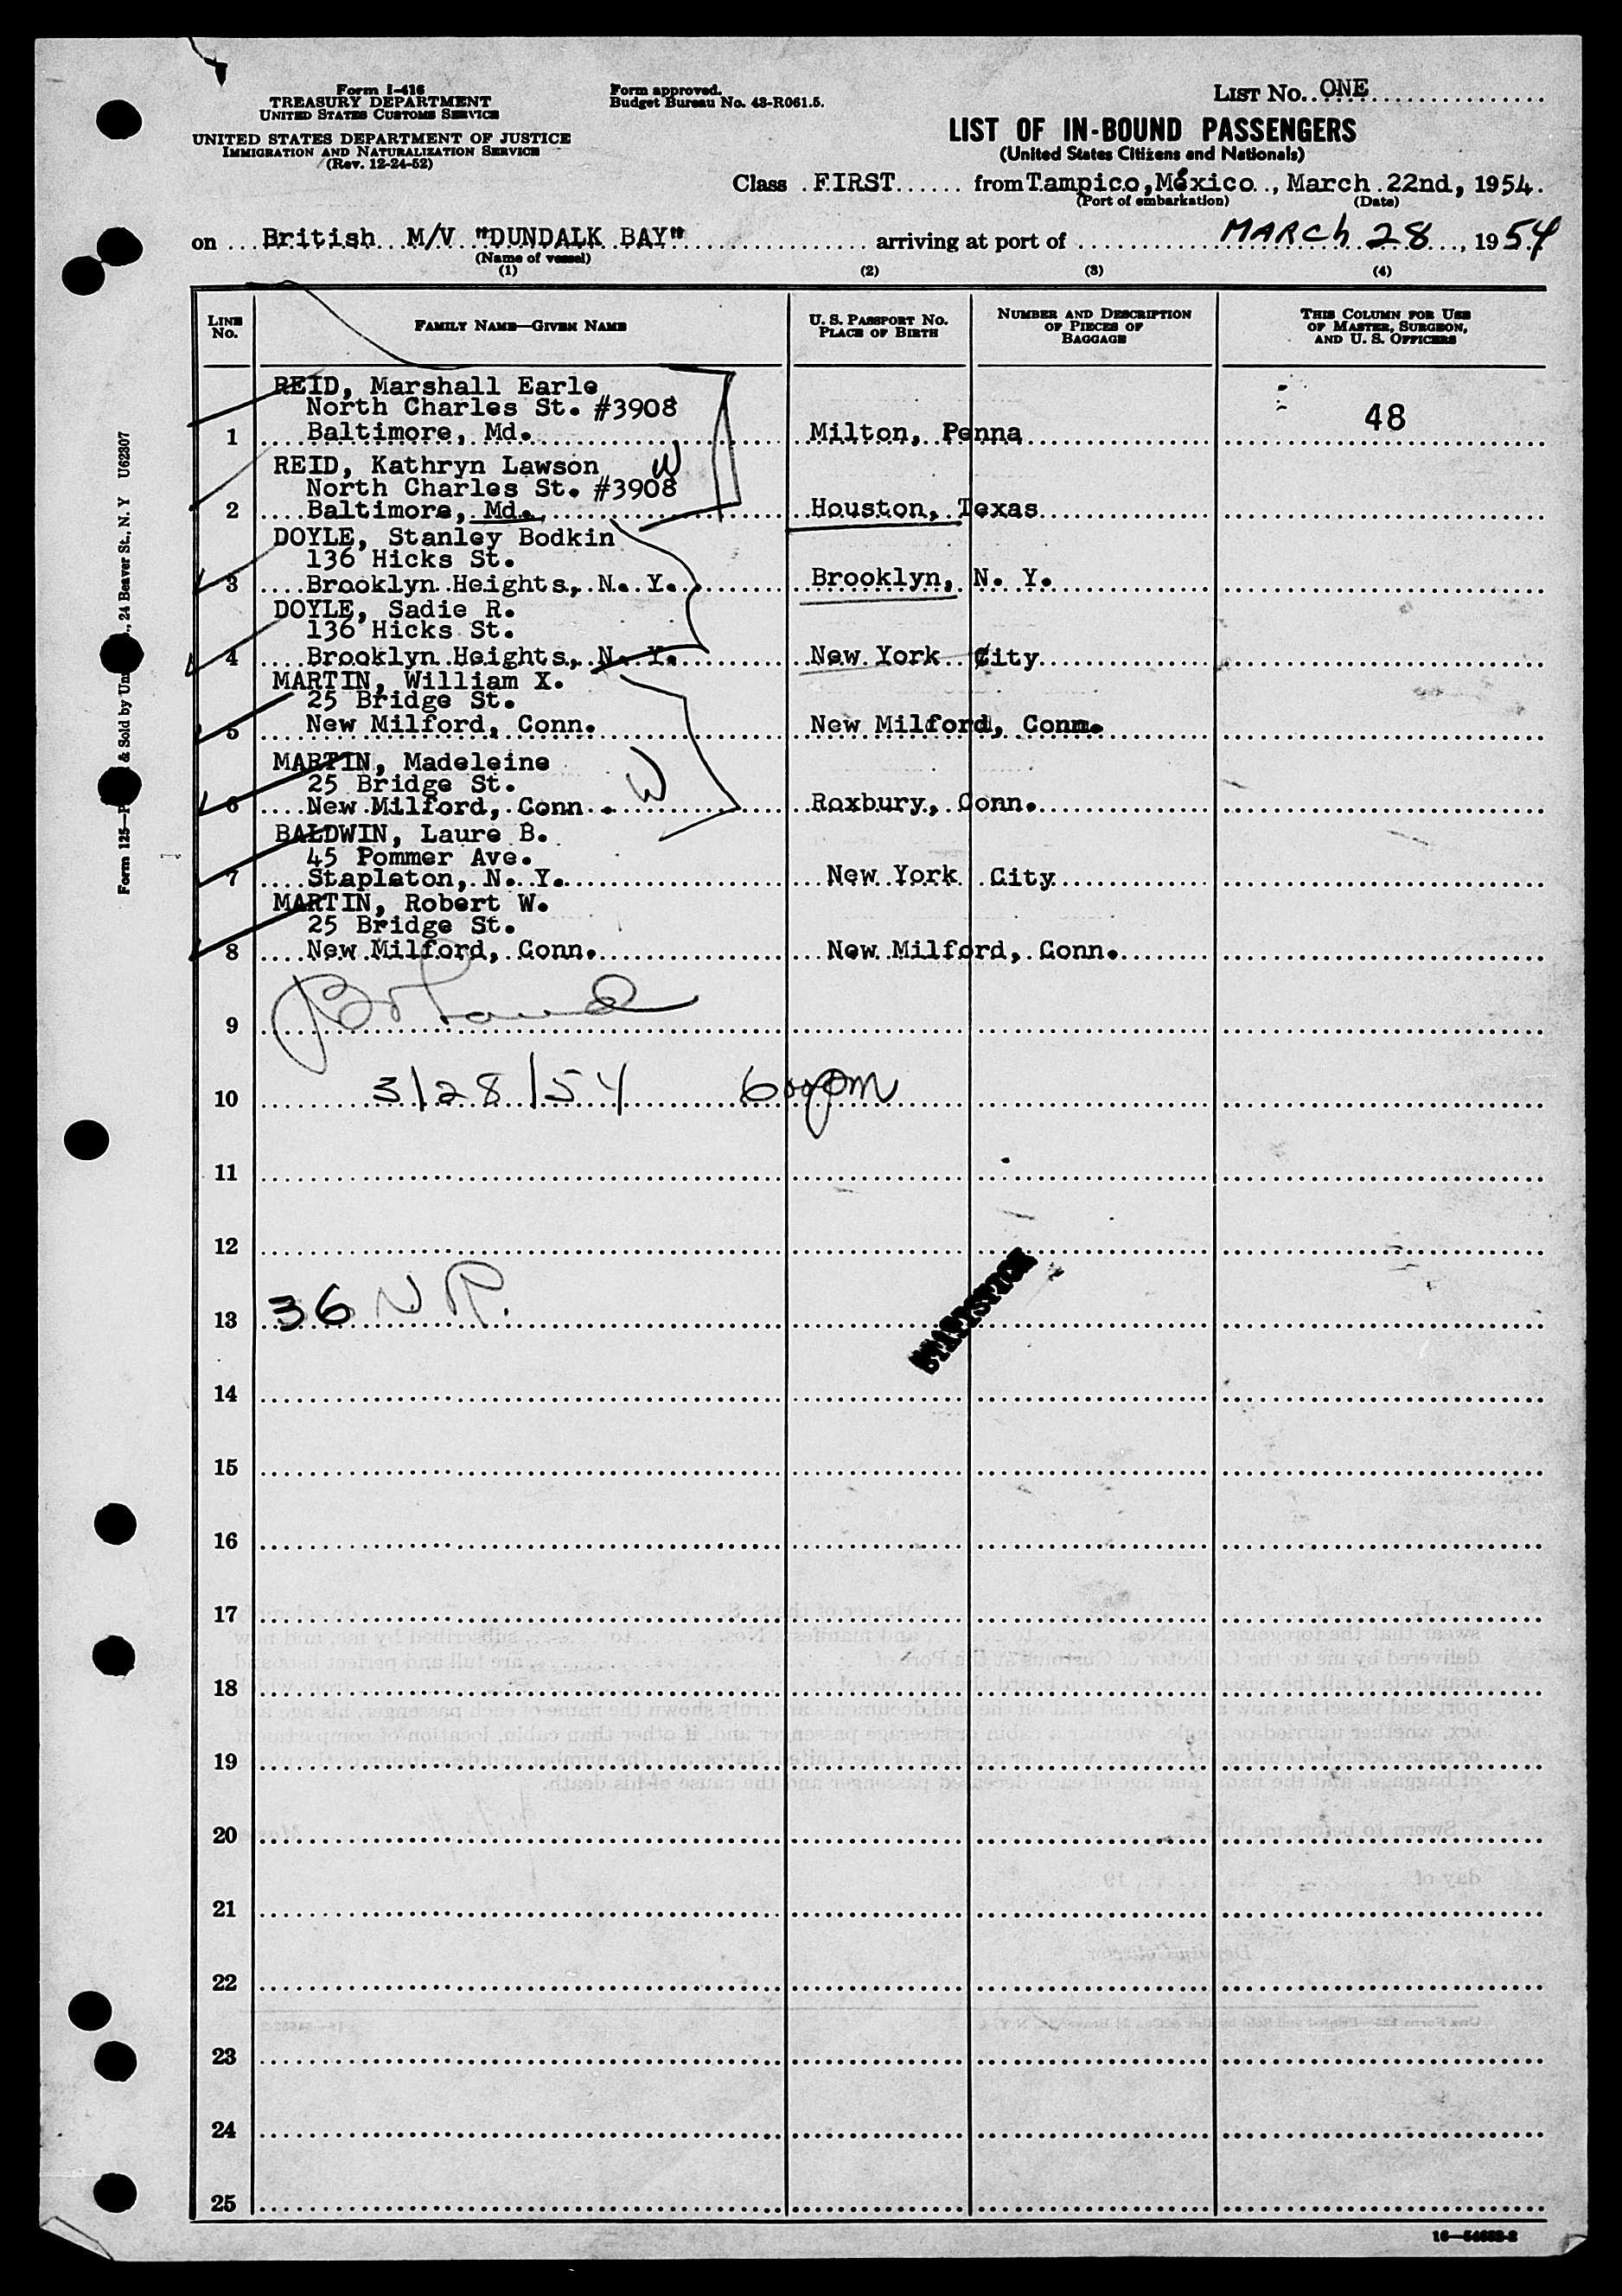 Form I-416
TREASURY DEPARTMENT
UNITED STATES CUSTOMS SERVICE
UNITED STATES DEPARTMENT OF JUSTICE
IMMIGRATION AND NATURALIZATION SERVICE
(Rev. 12-24-52)
Form approved.
Budget Bureau No. 43-R061.5.
LIST No. ONE
LIST OF IN-BOUND PASSENGERS
(United States Citizens and Nationals)
Class FIRST from Tampico, México, March 22nd, 1954.
(Port of embarkation) (Date)
on British M/V "DUNDALK BAY" arriving at port of MARCH 28, 1954
(Name of vessel)
(1) (2) (3) (4)
LINE No. FAMILY NAME—GIVEN NAME U. S. PASSPORT No. PLACE OF BIRTH NUMBER AND DESCRIPTION OF PIECES OF BAGGAGE THIS COLUMN FOR USE OF MASTER, SURGEON, AND U. S. OFFICERS
REID, Marshall Earle
North Charles St. #3908 48
1 Baltimore, Md. Milton, Penna
REID, Kathryn Lawson W
North Charles St. #3908
2 Baltimore, Md. Houston, Texas
DOYLE, Stanley Bodkin
136 Hicks St.
3 Brooklyn Heights, N. Y. Brooklyn, N. Y.
DOYLE, Sadie R.
136 Hicks St.
4 Brooklyn Heights, N. Y. New York City
MARTIN, William X.
25 Bridge St.
5 New Milford, Conn. New Milford, Conn.
MARTIN, Madeleine
25 Bridge St. W
6 New Milford, Conn. Roxbury, Conn.
BALDWIN, Laure B.
45 Pommer Ave.
7 Stapleton, N. Y. New York City
MARTIN, Robert W.
25 Bridge St.
8 New Milford, Conn. New Milford, Conn.
9
10 3/28/54 600pm
11
12
13 36 N R.
STATISTICS
14
15
16
17
18
19
20
21
22
23
24
25
16—54682-2
Form 125—P & Sold by Un ., 24 Beaver St., N. Y U62307